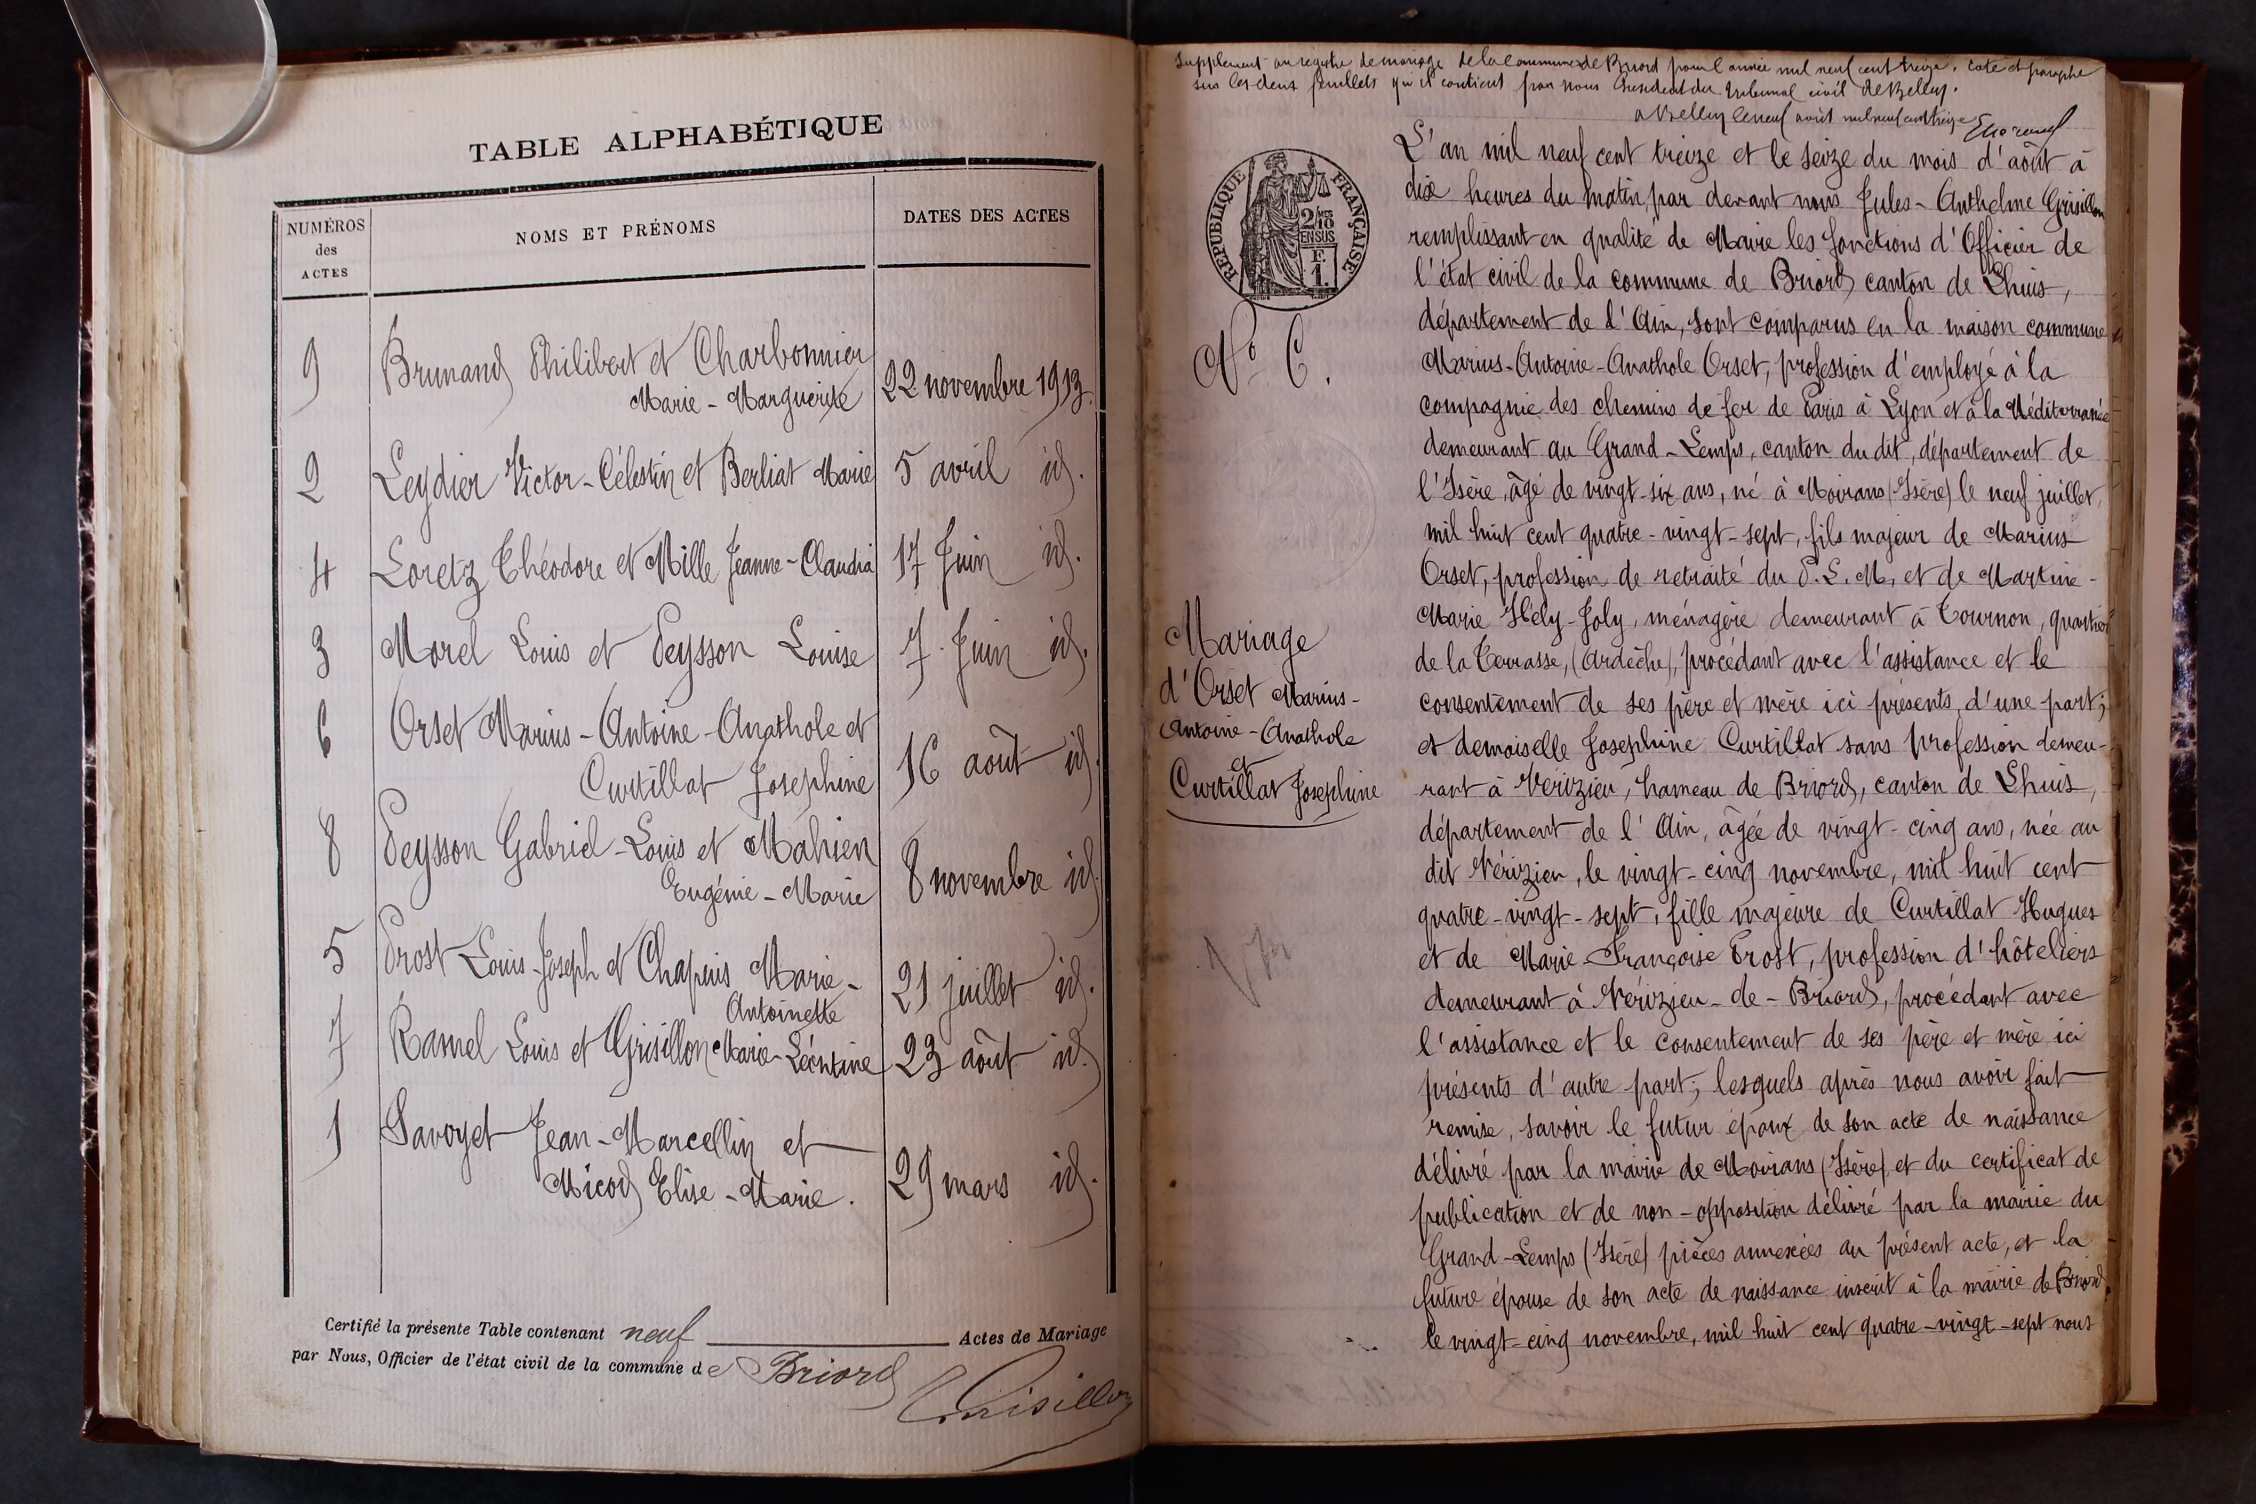 TABLE ALPHABÉTIQUE
NUMÉROS
des
ACTES
NOMS ET PRÉNOMS
DATES DES ACTES
9 Brunand Philibert et Charbonnier
Marie - Marguerite 22 novembre 1913.
2 Leydier Victor - Célestin et Berliat Marie 5 avril id.
4 Loretz Théodore et Mille Jeanne - Claudia 17 Juin id.
3 Morel Louis et Peysson Louise 7 Juin id.
6 Orset Marius - Antoine - Anathole et
Curtillat Josephine 16 août id.
8 Peysson Gabriel - Louis et Mahien
Eugénie - Marie 8 novembre id.
5 Prost Louis - Joseph et Chapuis Marie -
Antoinette 21 juillet id.
7 Ramel Louis et Grisillon Marie - Léontine 23 août id.
1 Savoyet Jean - Marcellin et
Micod Elise - Marie. 29 mars id.
Certifié la présente Table contenant neuf Actes de Mariage
par Nous, Officier de l'état civil de la commune de Briord
Grisillon
Supplement au registre de mariage de la commune de Briord pour l'année mil neuf cent treize. Coté et paraphé
sur les deux feuillets qu'il contient par nous Président du Tribunal civil de Belley.
à Belley le neuf août mil neuf cent treize
RÉPUBLIQUE FRANÇAISE
2/10
EN SUS
F.
1.
No 6.
Mariage
d'Orset Marius -
Antoine - Anathole
et
Curtillat Josephine
L'an mil neuf cent treize et le seize du mois d'août à
dix heures du matin, par devant nous Jules - Anthelme Grisillon
remplissant en qualité de Maire les fonctions d'Officier de
l'état civil de la commune de Briord canton de Lhuis,
département de l'Ain, sont comparus en la maison commune
Marius - Antoine - Anathole Orset, profession d'employé à la
compagnie des chemins de fer de Paris à Lyon et à la Méditerranée
demeurant au Grand - Lemps, canton du dit, département de
l'Isère, âgé de vingt-six ans, né à Moirans (Isère) le neuf juillet,
mil huit cent quatre - vingt - sept, fils majeur de Marius
Orset, profession de retraité du P. L. M. et de Martine -
Marie Hély - Joly, ménagère demeurant à Tournon, quartier
de la Terrasse, (Ardèche), procédant avec l'assistance et le
consentement de ses père et mère ici présents d'une part;
et demoiselle Josephine Curtillat sans profession demeu-
rant à Vérizieu, hameau de Briord, canton de Lhuis,
département de l'Ain, âgée de vingt - cinq ans, née au
dit Vérizieu, le vingt - cinq novembre, mil huit cent
quatre - vingt - sept, fille majeure de Curtillat Hugues
et de Marie - Françoise Prost, profession d'hôteliers
demeurant à Vérizieu - de - Briord, procédant avec
l'assistance et le consentement de ses père et mère ici
présents d'autre part; lesquels après nous avoir fait
remise, savoir le futur époux de son acte de naissance
délivré par la mairie de Moirans (Isère) et du certificat de
publication et de non - opposition délivré par la mairie du
Grand - Lemps (Isère) pièces annexées au présent acte, et la
future épouse de son acte de naissance inscrit à la mairie de Briord,
le vingt - cinq novembre, mil huit cent quatre - vingt - sept nous